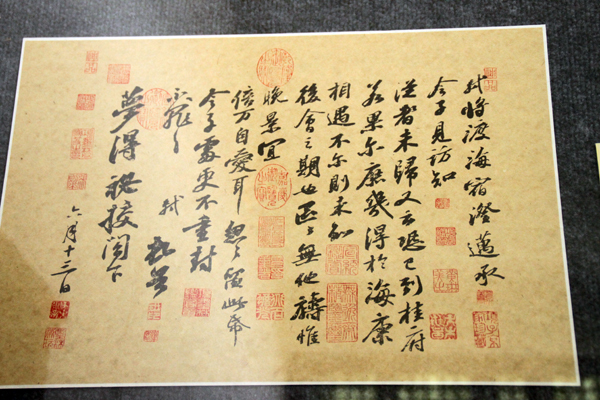 軾將渡海宿澄邁承
令子見訪知
從者未歸又云恐已到桂府
若果尔庶幾得於海康
相遇不尔則未知
後會之期也區〻無他禱惟
晚景宜
倍万自愛耳 怱〻留此帋
令子處更不重封
不罪〻 軾 頓首
夢得祕校閣下
六月十三日